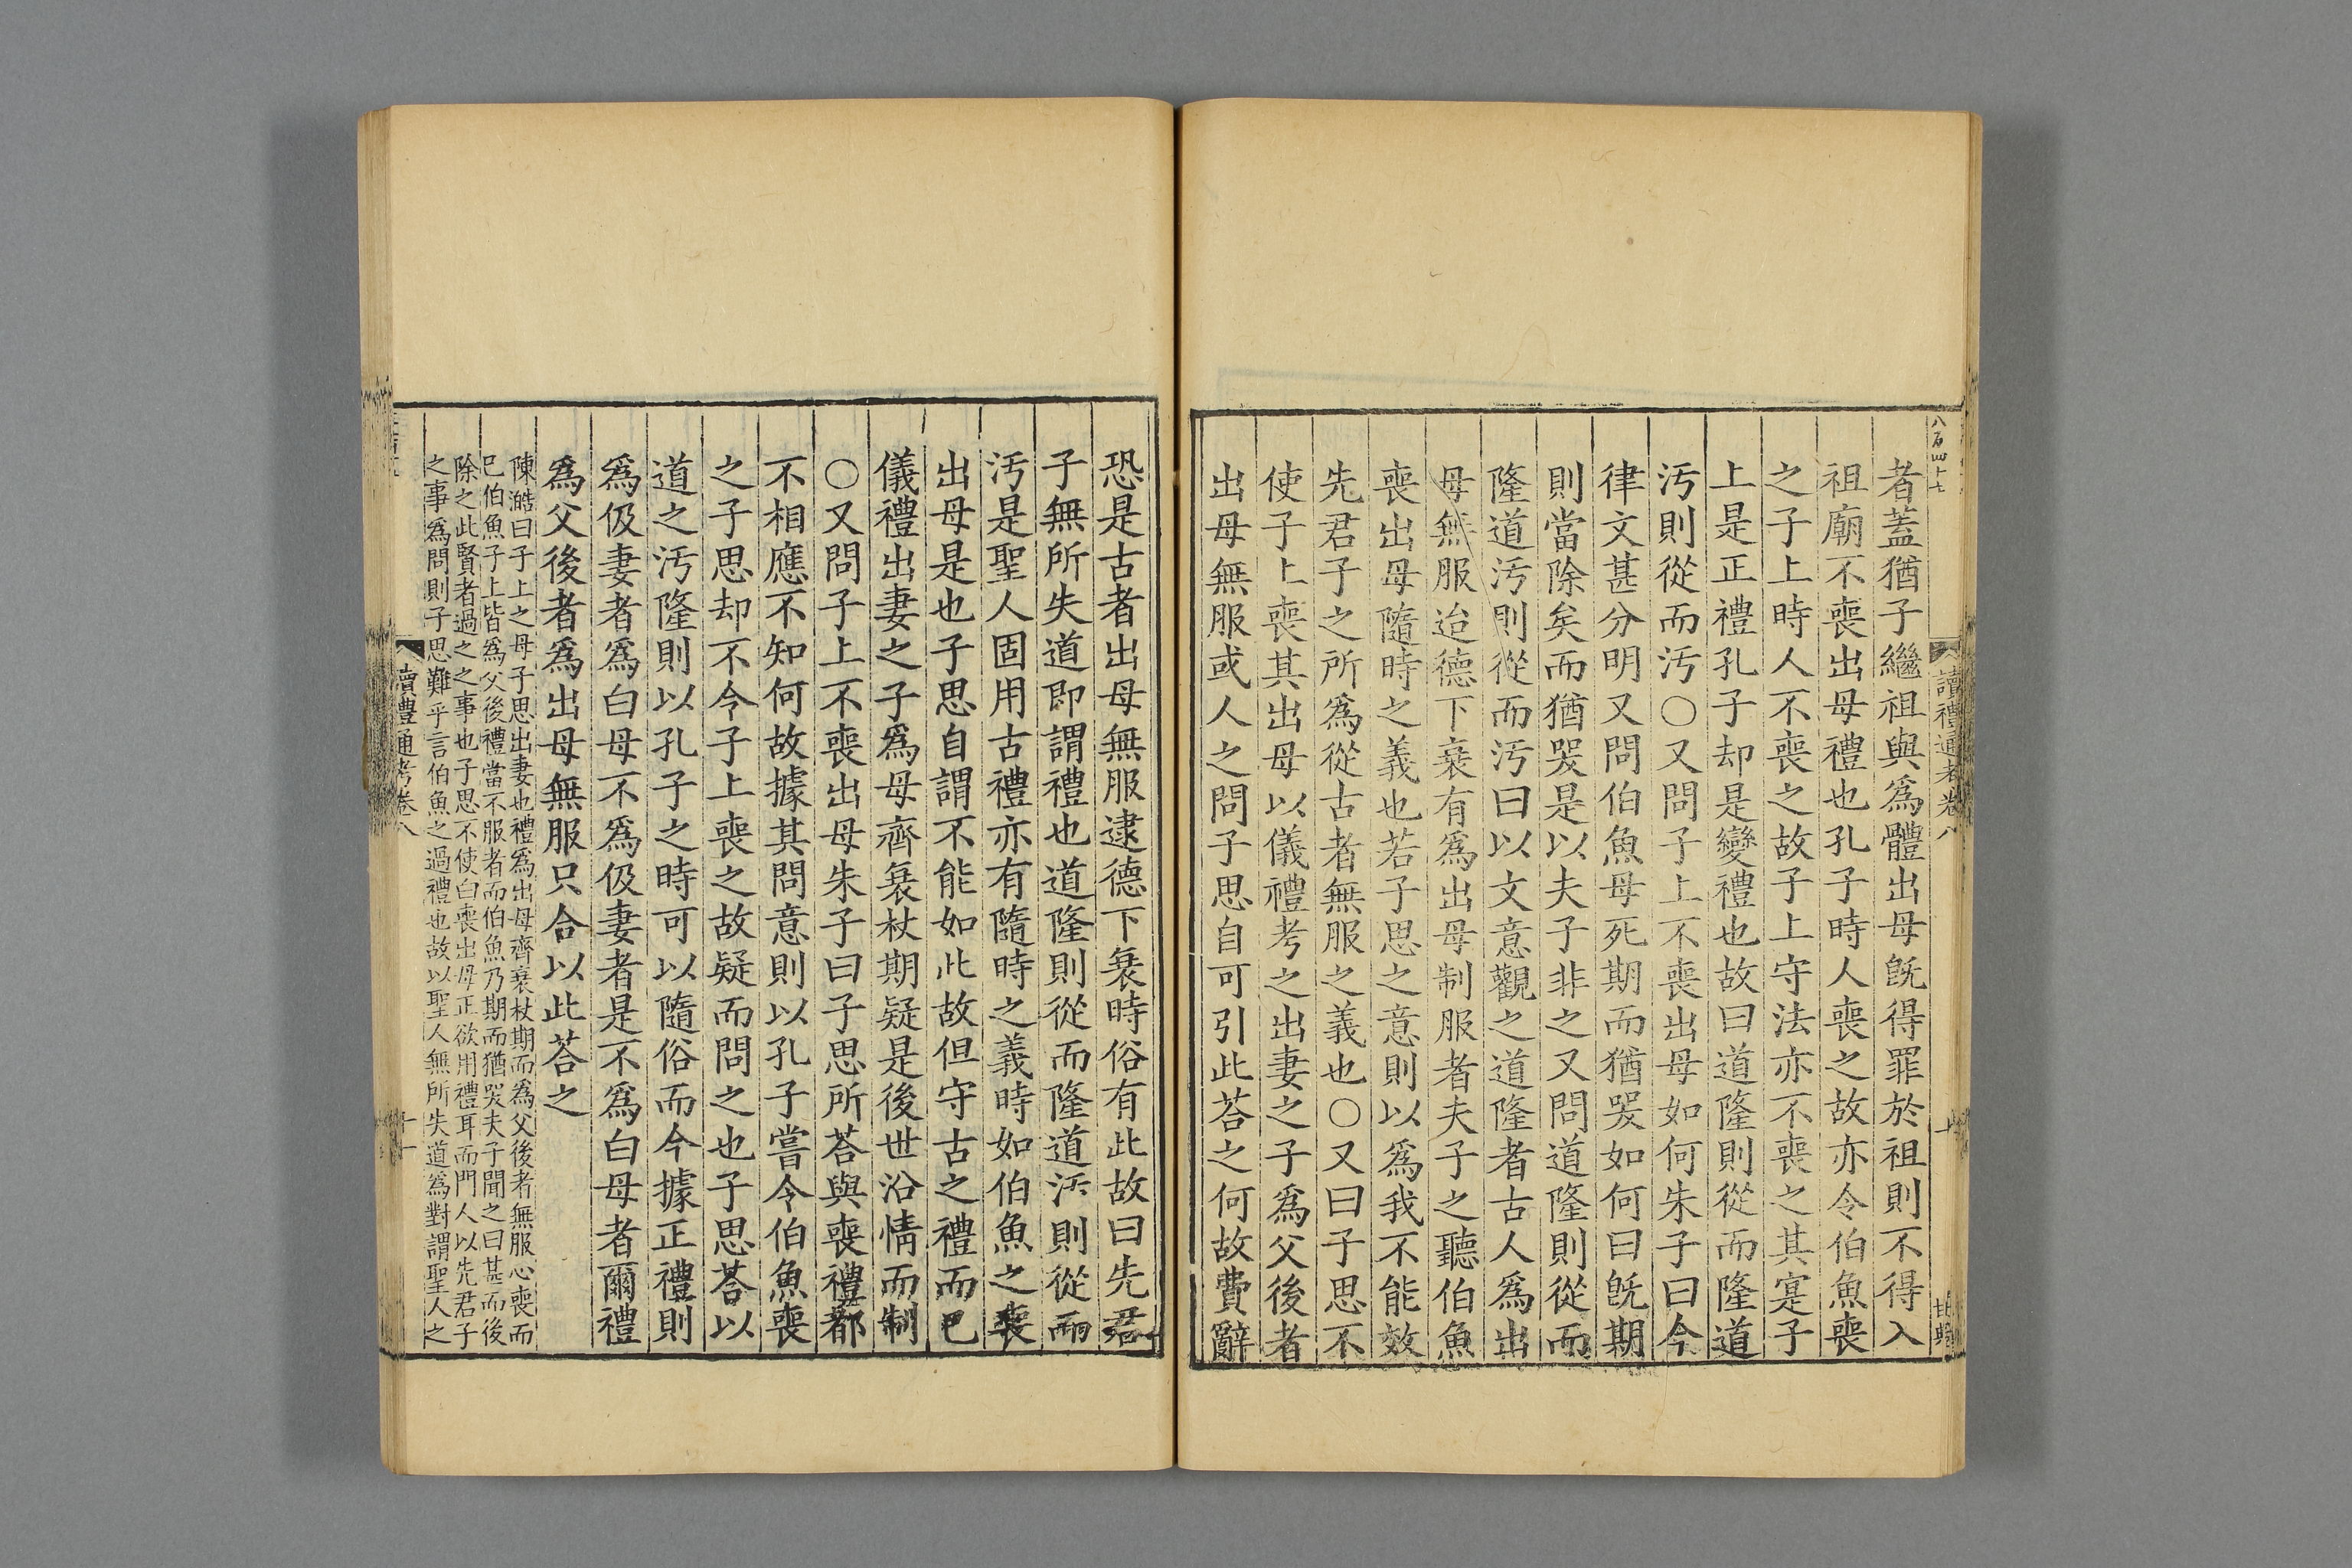 八百四十七
讀禮通考卷八
者蓋猶子繼祖與爲體出母旣得罪於祖則不得入
祖廟不喪出母禮也孔子時人喪之故亦令伯魚喪
之子上時人不喪之故子上守法亦不喪之其寔子
上是正禮孔子却是變禮也故曰道隆則從而隆道
汚則從而汚○又問子上不喪出母如何朱子曰今
律文甚分明又問伯魚母死期而猶哭如何曰旣期
則當除矣而猶哭是以夫子非之又問道隆則從而
隆道汚則從而汚曰以文意觀之道隆者古人爲出
母無服迨德下衰有爲出母制服者夫子之聽伯魚
喪出母隨時之義也若子思之意則以爲我不能效
先君子之所爲從古者無服之義也○又曰子思不
使子上喪其出母以儀禮考之出妻之子爲父後者
出母無服或人之問子思自可引此荅之何故費辭
恐是古者出母無服逮德下衰時俗有此故曰先君
子無所失道卽謂禮也道隆則從而隆道汚則從而
汚是聖人固用古禮亦有隨時之義時如伯魚之喪
出母是也子思自謂不能如此故但守古之禮而已
儀禮出妻之子爲母齊衰杖期疑是後世沿情而制
○又問子上不喪出母朱子曰子思所荅與喪禮都
不相應不知何故據其問意則以孔子嘗令伯魚喪
之子思却不令子上喪之故疑而問之也子思荅以
道之汚隆則以孔子之時可以隨俗而今據正禮則
爲伋妻者爲白母不爲伋妻者是不爲白母者爾禮
爲父後者爲出母無服只合以此荅之
陳澔曰子上之母子思出妻也禮爲出母齊衰杖期而爲父後者無服心喪而
已伯魚子上皆爲父後禮當不服者而伯魚乃期而猶哭夫子聞之曰甚而後
除之此賢者過之之事也子思不使白喪出母正欲用禮耳而門人以先君子
之事爲問則子思難乎言伯魚之過禮也故以聖人無所失道爲對謂聖人之
讀禮通考卷八
十一